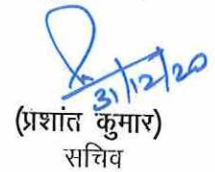 31/12/20
(प्रशांत कुमार)
सचिव